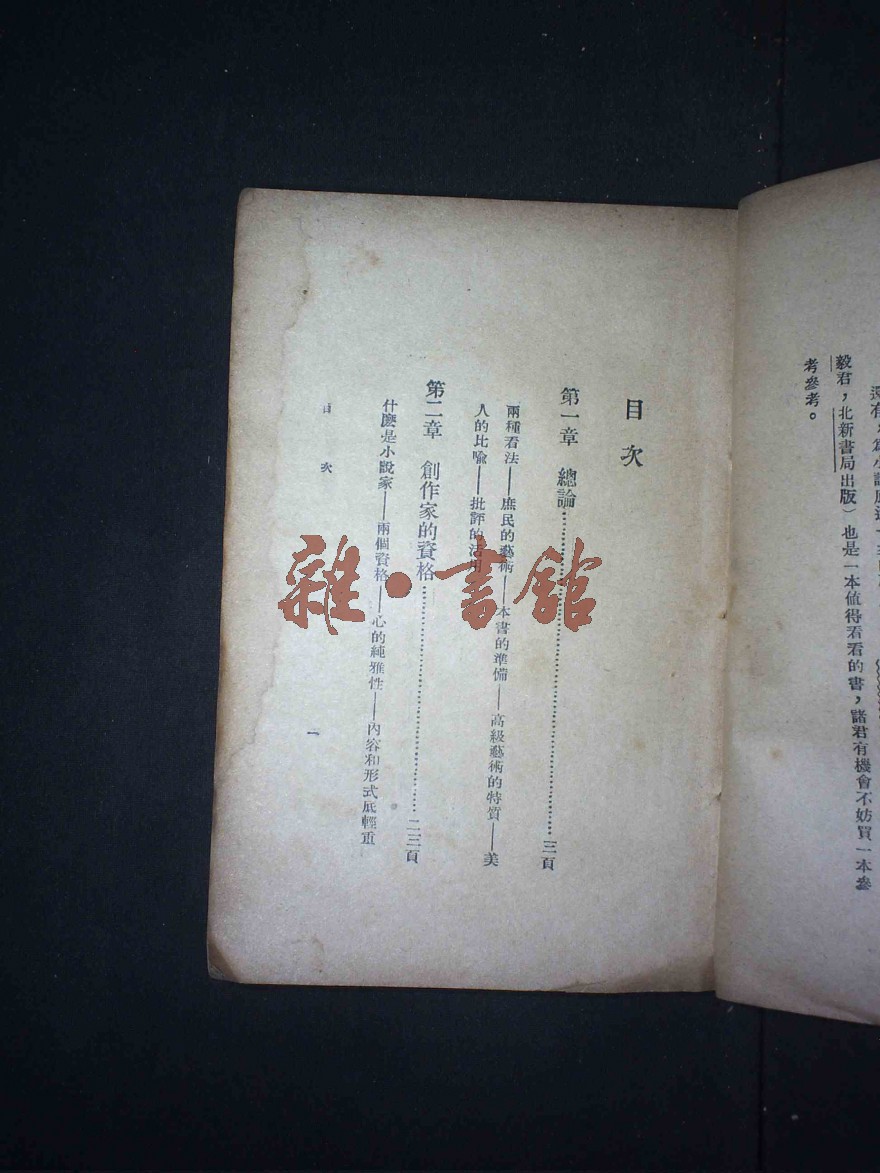 毅君，北新書局出版）也是一本值得看看的書，諸君有機會不妨買一本參
考參考。
目次
第一章　總論……三頁
兩種看法——庶民的藝術——本書的準備——高級藝術的特質——美
人的比喩——批評的活用
第二章　創作家的資格……二三頁
什麽是小說家——兩個資格——心的純雅性——內容和形式底輕重
目次
一
雜·書館